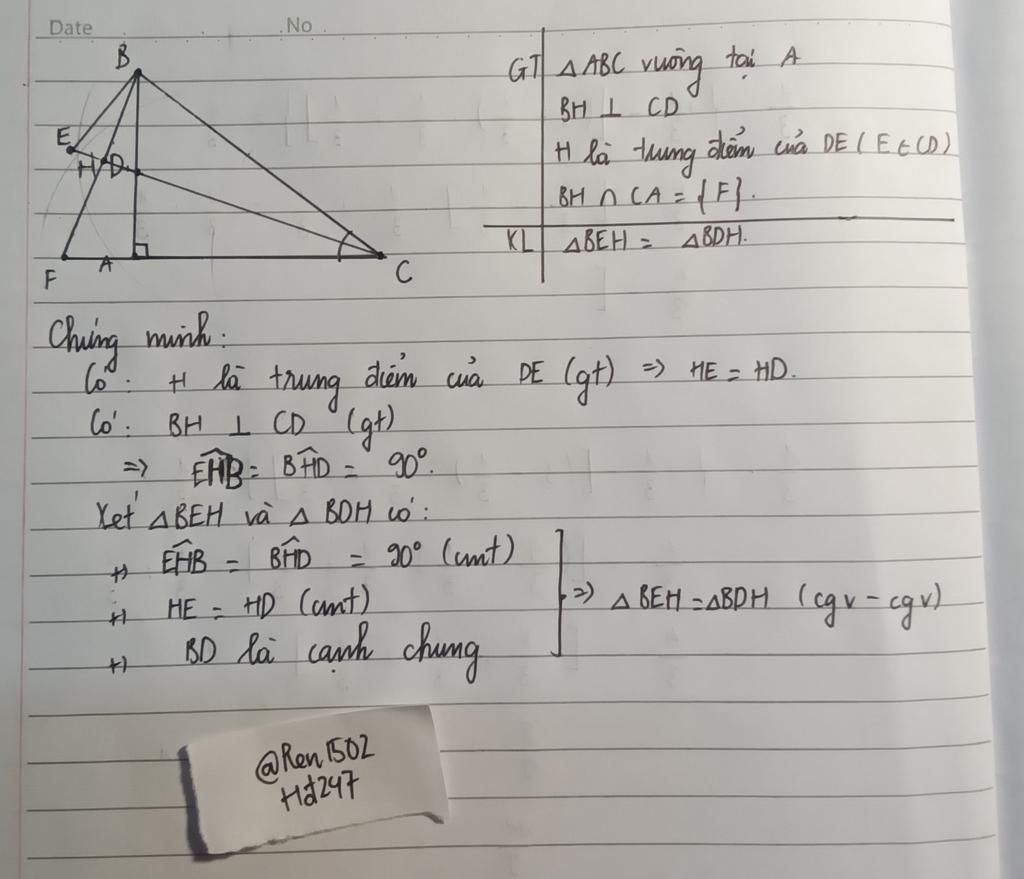 Date No.
B
E
H D
F A C
GT ΔABC vuông tại A
BH ⊥ CD
H là trung điểm của DE (E ∈ CD)
BH ∩ CA = {F}.
KL ΔBEH = ΔBDH.
Chứng minh:
Có: H là trung điểm của DE (gt) => HE = HD.
Có: BH ⊥ CD (gt)
=> \widehat{EHB} = \widehat{BHD} = 90°.
Xét ΔBEH và Δ BDH có:
+) \widehat{EHB} = \widehat{BHD} = 90° (cmt)
+) HE = HD (cmt)
+) BD là cạnh chung
=> ΔBEH = ΔBDH (cgv - cgv)
@Ren1502
Hđ247